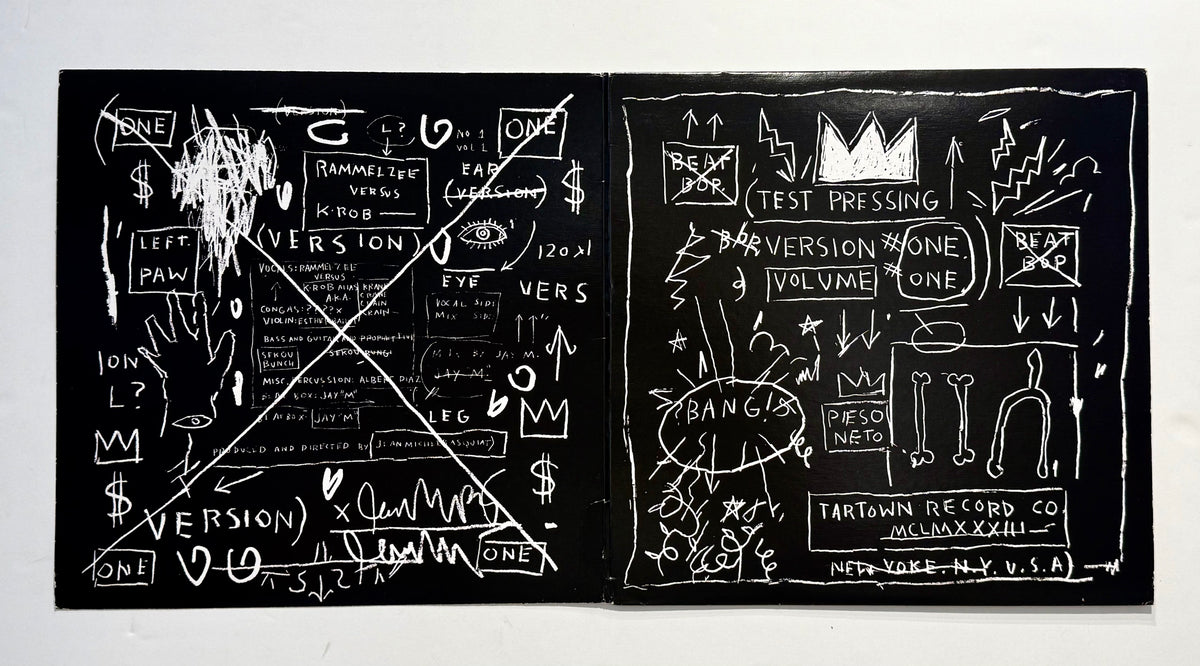 (VERSION)
ONE
L?
NO 1
VOL 1
ONE
$
RAMMELZEE
VERSUS
K·ROB
EAR
(VERSION)
$
LEFT
PAW
(VERSION)
120 X1
EYE
VERS
VOCALS: RAMMELZEE
VERSUS
K·ROB ALIAS
A.K.A.
VOCAL SIDE
MIX SIDE
CONGAS: ????X
VIOLIN:
BASS AND GUITAR AND
SEKOU
BUNCH
ION
L?
JAY M.
JAY M.
MISC. PERCUSSION: ALBERT DIAZ
BOX: JAY "M"
BOX: JAY "M"
LEG
PRODUCED AND DIRECTED BY JEAN MICHEL BASQUIAT)
$
$
VERSION)
X
ONE
ONE
BEAT
BOP
(TEST PRESSING
BOP VERSION # ONE.
VOLUME # ONE.
BEAT
BOP
?BANG!
PIESO
NETO
TARTOWN RECORD CO.
MCLMXXXIII
NEW YOKE. N.Y. U.S.A)